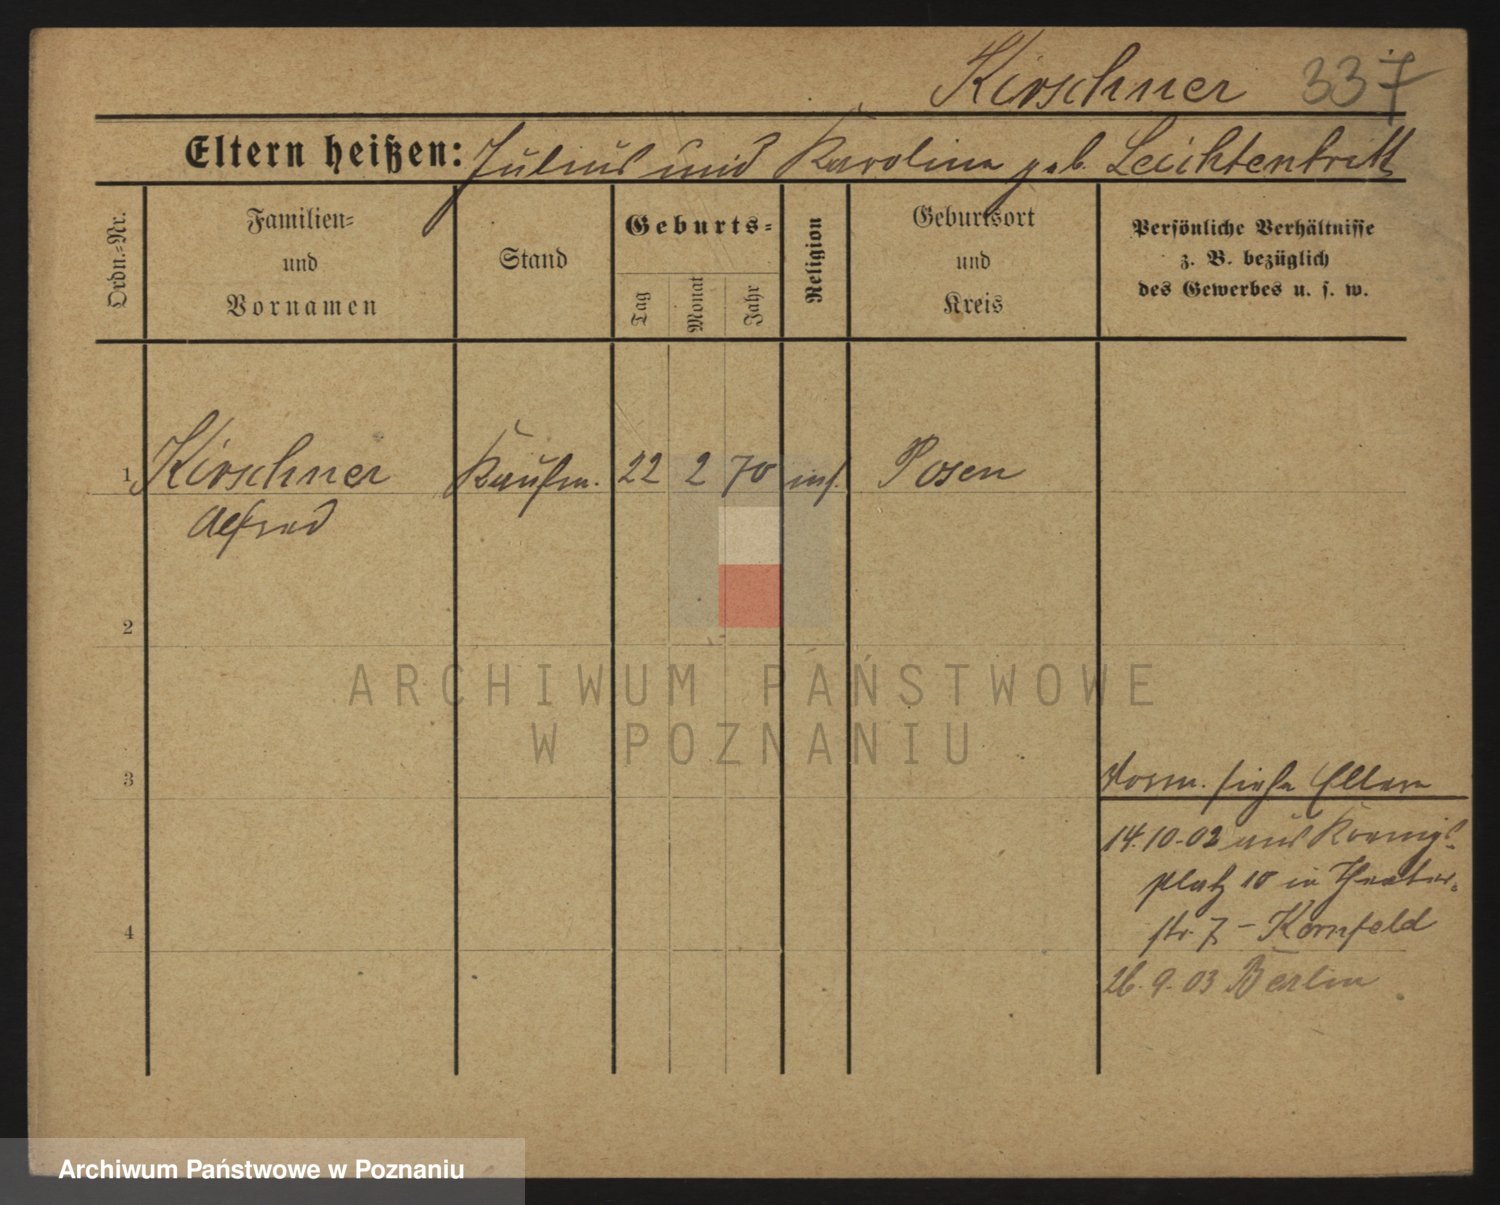 Kirschner 337
Eltern heißen: Julius und Karoline geb. Leichtentritt
Ordn.-Nr.
Familien-
und
Vornamen
Stand
Geburts-
Tag
Monat
Jahr
Religion
Geburtsort
und
Kreis
Persönliche Verhältnisse
z. B. bezüglich
des Gewerbes u. s. w.
1 Kirschner Kaufm. 22 2 70 Posen
Alfred
2
ARCHIWUM PAŃSTWOWE
W POZNANIU
3
siehe Eltern
14.10.02 aus Koenigs-
platz 10 in Theater-
str 7 - Kornfeld
4
26.9.03 Berlin
Archiwum Państwowe w Poznaniu